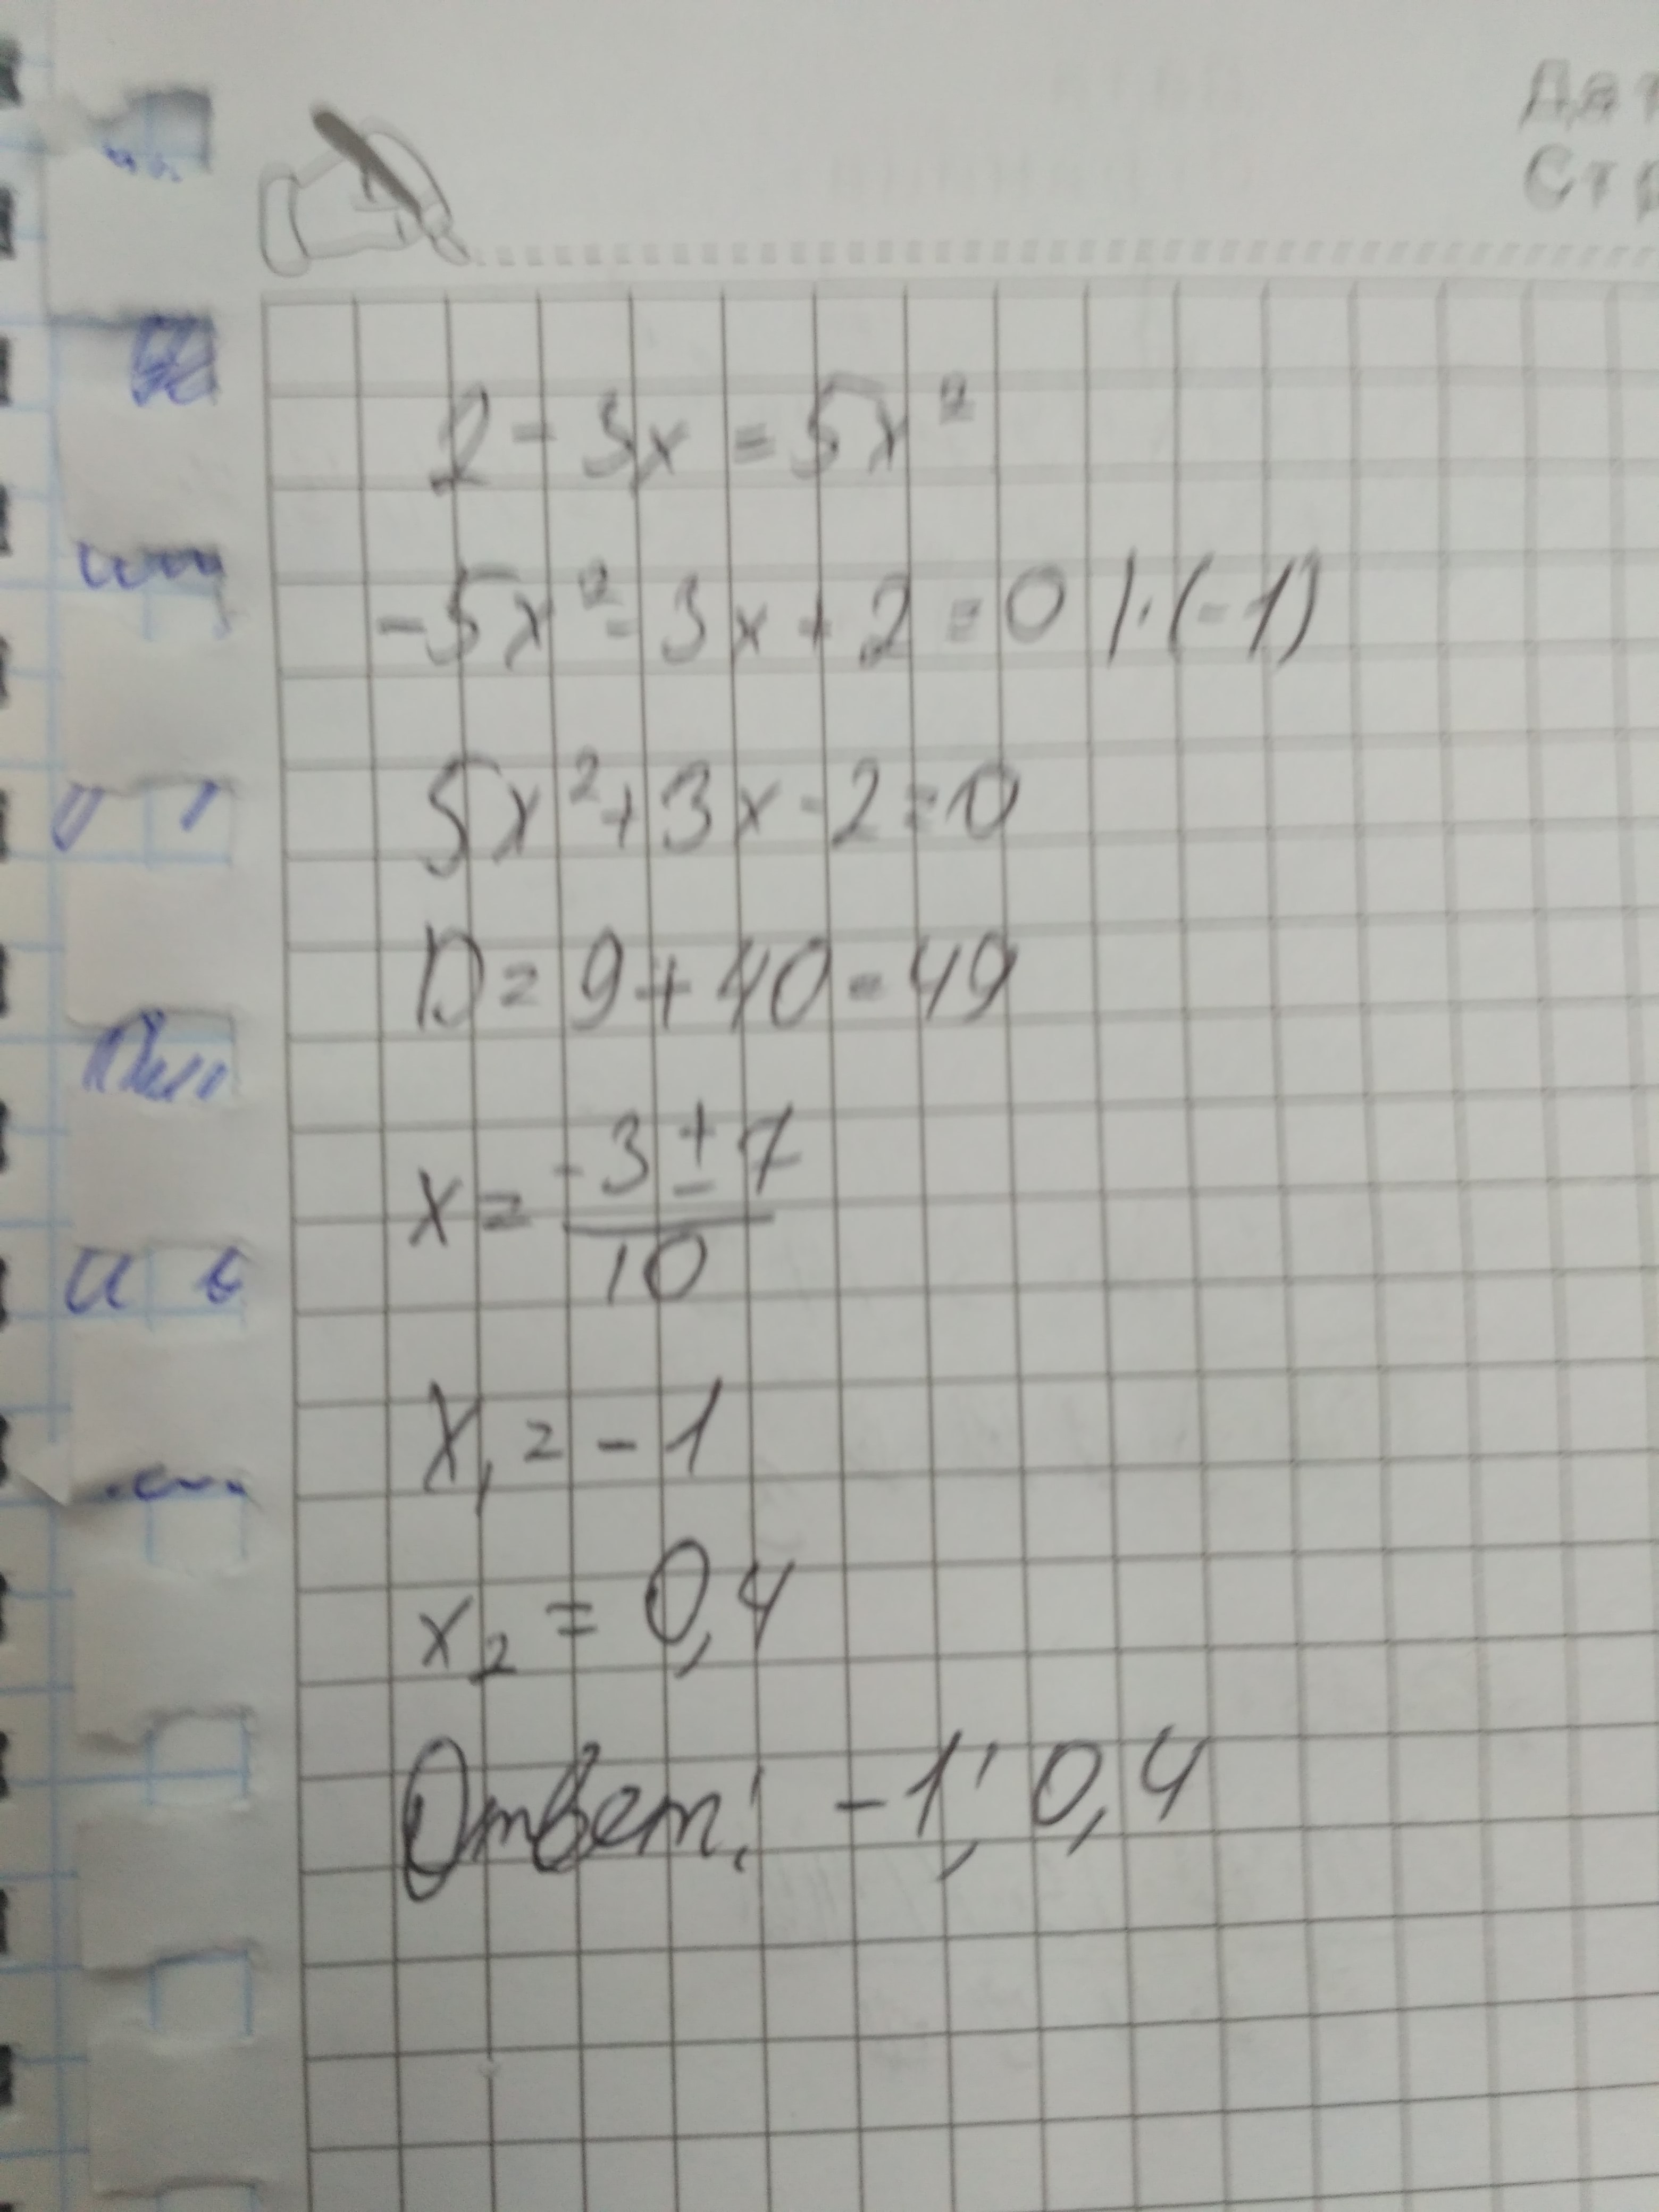 Дат
Стр
2 - 3x = 5x²
-5x² - 3x + 2 = 0 | · (-1)
5x² + 3x - 2 = 0
D = 9 + 40 = 49
x = (-3 ± 7) / 10
x₁ = -1
x₂ = 0,4
Ответ: -1; 0,4